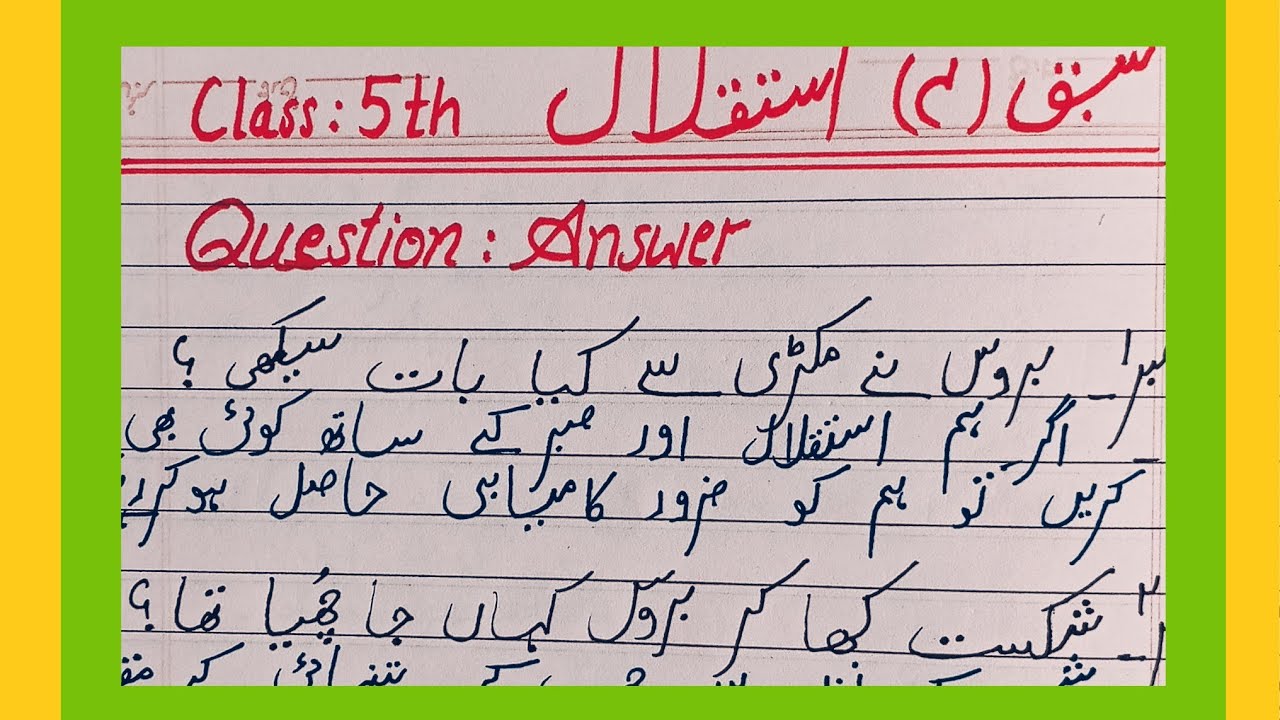 سبق (۲) استقلال Class: 5th
Question: Answer
نمبر۱۔ بروس نے مکڑی سے کیا بات سیکھی ؟
۔ اگر ہم استقلال اور صبر کے ساتھ کوئی بھی
کریں تو ہم کو ضرور کامیابی حاصل ہوکر
۲۔ شکست کھا کر بروس کہاں جا چُھپا تھا ؟